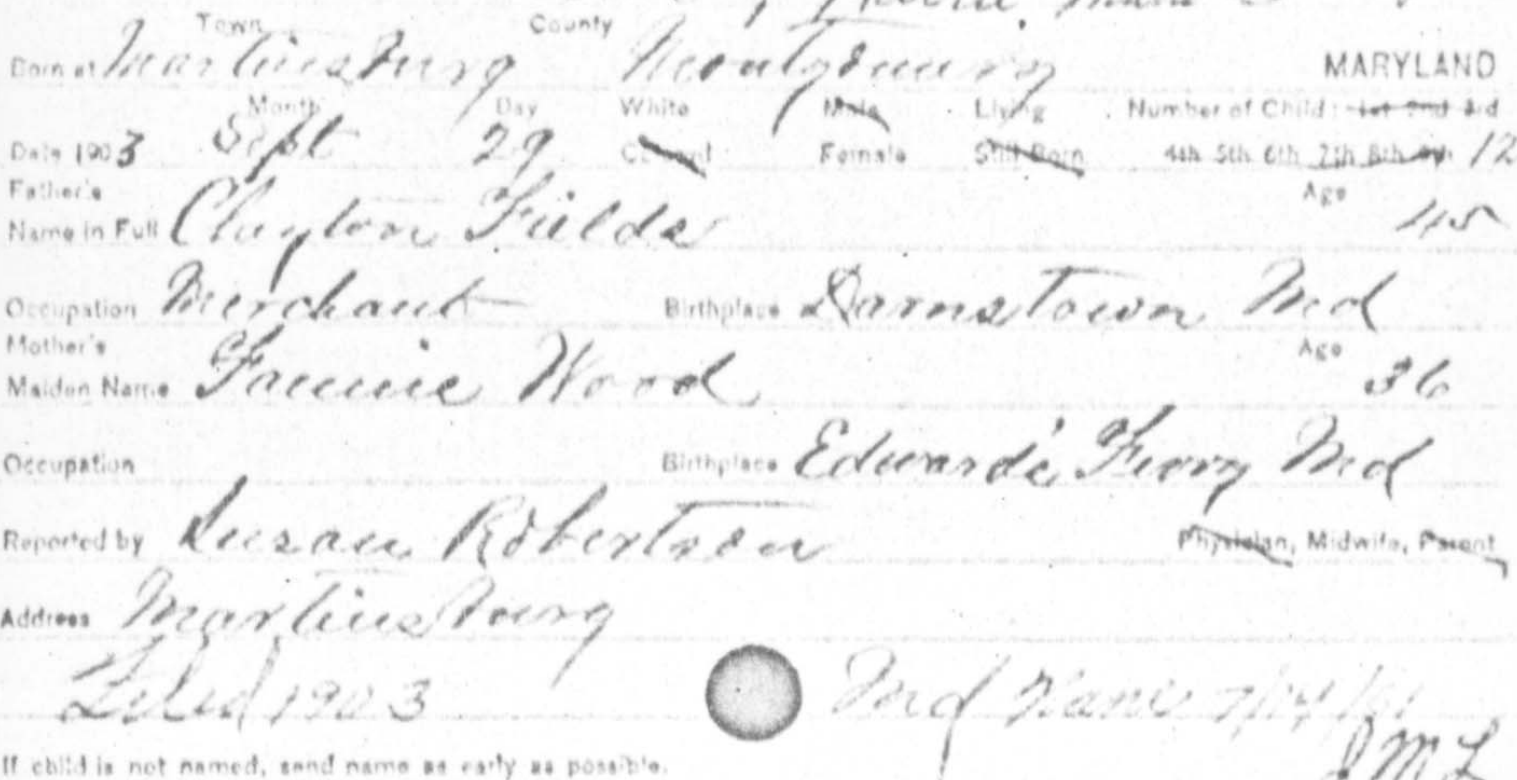 Town County
Born at Martinsburg Montgomery MARYLAND
Month Day White Male Living Number of Child: 1st 2nd 3rd
Date 1903 Sept 29 Colored Female Still Born 4th 5th 6th 7th 8th 9th 12
Father's Age
Name in Full Clayton Fields 45
Occupation Merchant Birthplace Darnstown Md
Mother's Age
Maiden Name Fannie Wood 36
Occupation Birthplace Edward's Ferry Md
Reported by Susan Robertson Physician, Midwife, Parent
Address Martinsburg
Filed 1903 Md
JML
If child is not named, send name as early as possible.